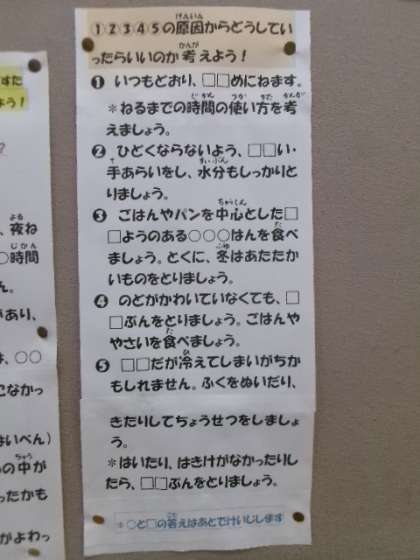 ①②③④⑤の原因からどうしてい
ったらいいのか考えよう！
❶ いつもどおり、□□めにねます。
＊ねるまでの時間の使い方を考
えましょう。
❷ ひどくならないよう、□□い・
手あらいをし、水分もしっかりと
りましょう。
❸ ごはんやパンを中心とした□
□ようのある○○○はんを食べ
ましょう。とくに、冬はあたたか
いものをとりましょう。
❹ のどがかわいていなくても、□
□ぶんをとりましょう。ごはんや
やさいを食べましょう。
❺ □□だが冷えてしまいがちか
もしれません。ふくをぬいだり、
きたりしてちょうせつをしましょ
う。
＊はいたり、はきけがなかったりし
たら、□□ぶんをとりましょう。
＊○と□の答えはあとでけいじします
すた
よう！
？
、夜ね
○時間
ん。
があり、
は、○○
こなかっ
はいべん）
の中が
ったかも
がよわっ